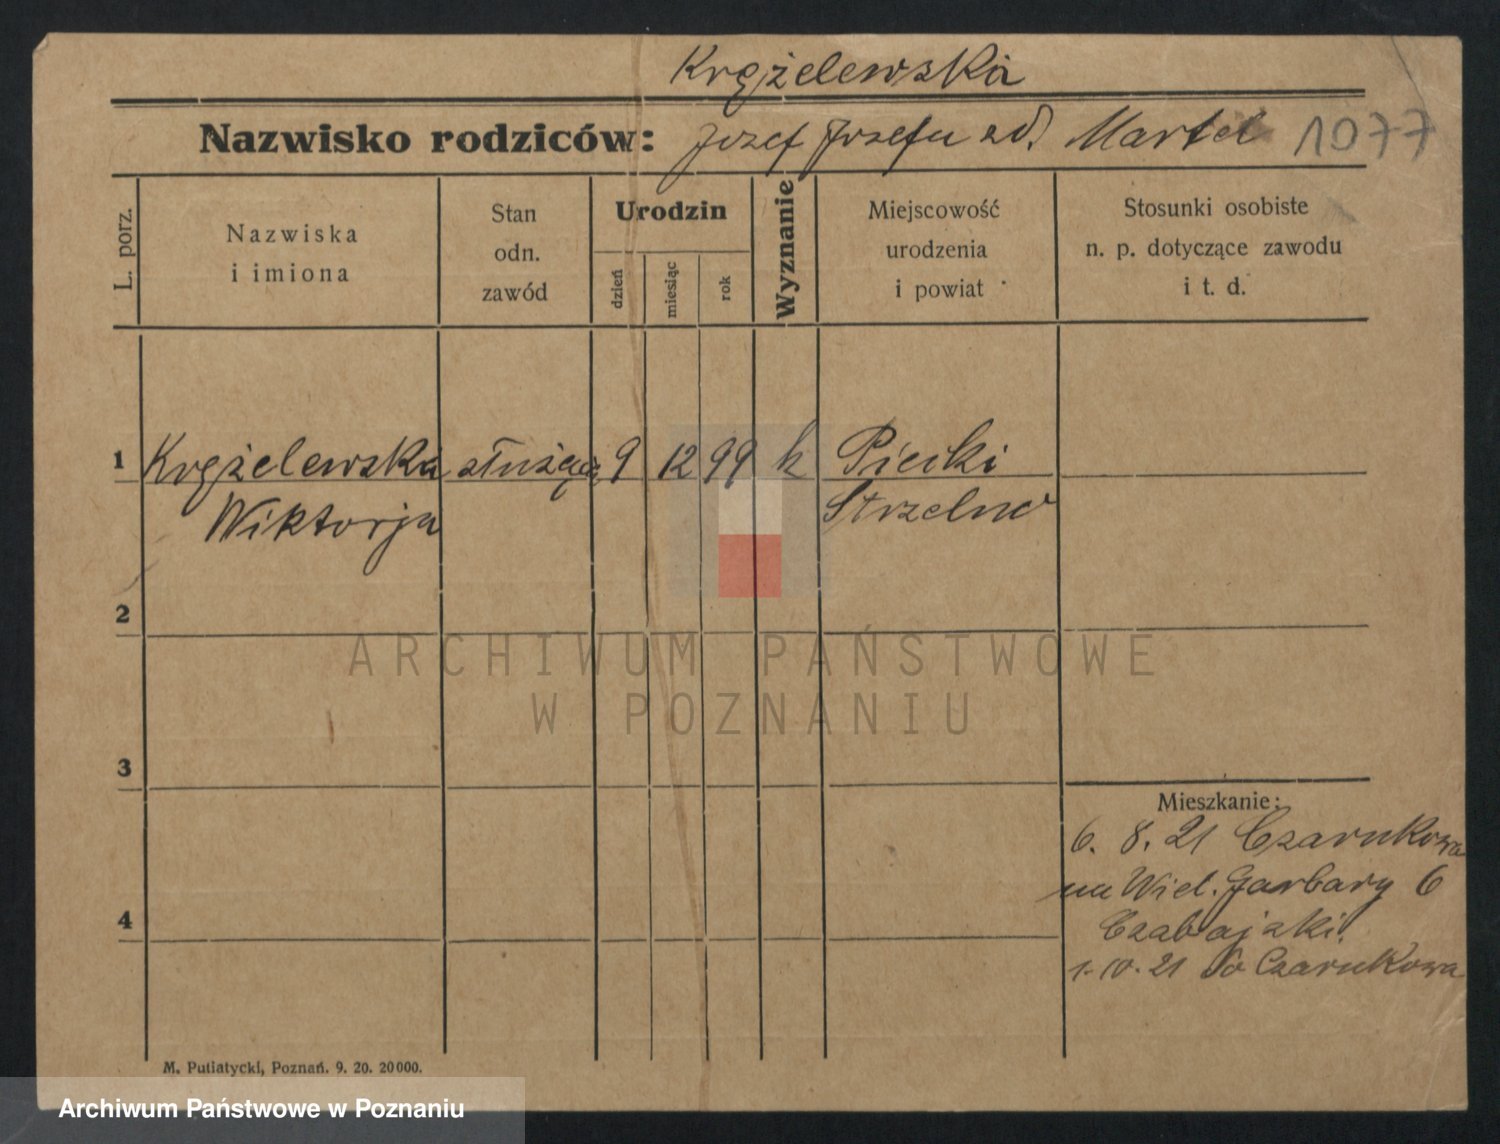 Krężelewska
Nazwisko rodziców: Jozef Jozefa zd. Martel 1077
L. porz.
Nazwiska
i imiona
Stan
odn.
zawód
Urodzin
dzień
miesiąc
rok
Wyznanie
Miejscowość
urodzenia
i powiat
Stosunki osobiste
n. p. dotyczące zawodu
i t. d.
1 Krężelewska służąca 9 12 99 k Piecki
Wiktorja Strzelno
2
3
Mieszkanie:
6. 8. 21 Czarnkowa
na Wiel. Garbary 6
Czabajski.
4
1.10.21 do Czarnkowa
M. Putiatycki, Poznań. 9. 20. 20000.
ARCHIWUM PAŃSTWOWE
W POZNANIU
Archiwum Państwowe w Poznaniu